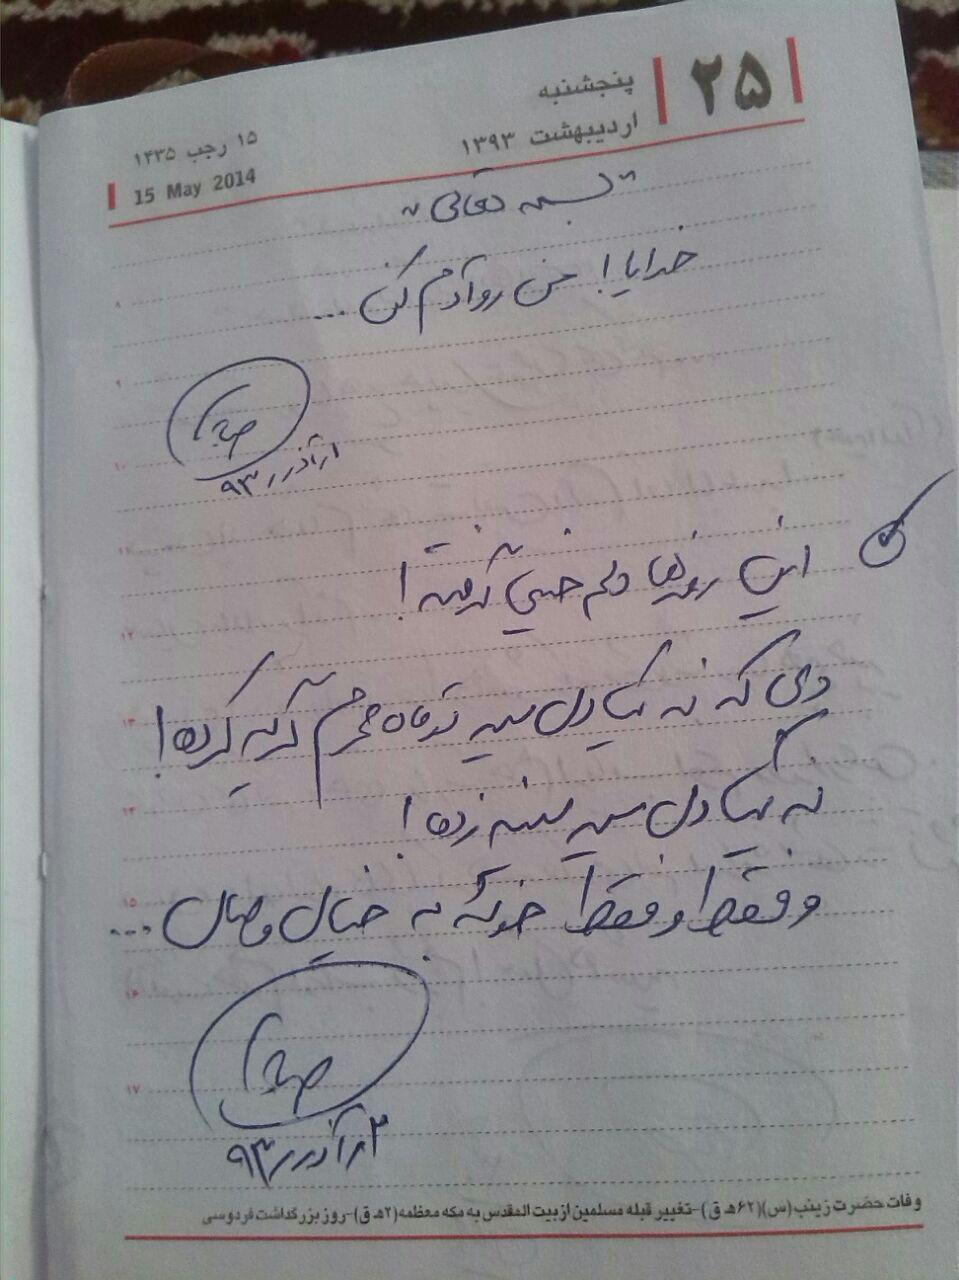 ۲۵
پنجشنبه
اردیبهشت ۱۳۹۳
۱۵ رجب ۱۴۳۵
15 May 2014
"بسمه تعالی"
خدایا! من رو آدم کن ...
۹۳/آذر/۱
این روزها دلم خیلی گرفته!
دلی که نه یک دل سیر تو ماه محرم گریه کرده!
نه یک دل سیر سینه زده!
و فقط و فقط به خیال وصال ...
۹۳/آذر/۳
۸
۹
۱۰
۱۱
۱۲
۱۳
۱۴
۱۵
۱۶
۱۷
وفات حضرت زینب (س) (۶۲ ه ق) - تغییر قبله مسلمین از بیت المقدس به مکه معظمه (۲ ه ق) - روز بزرگداشت فردوسی